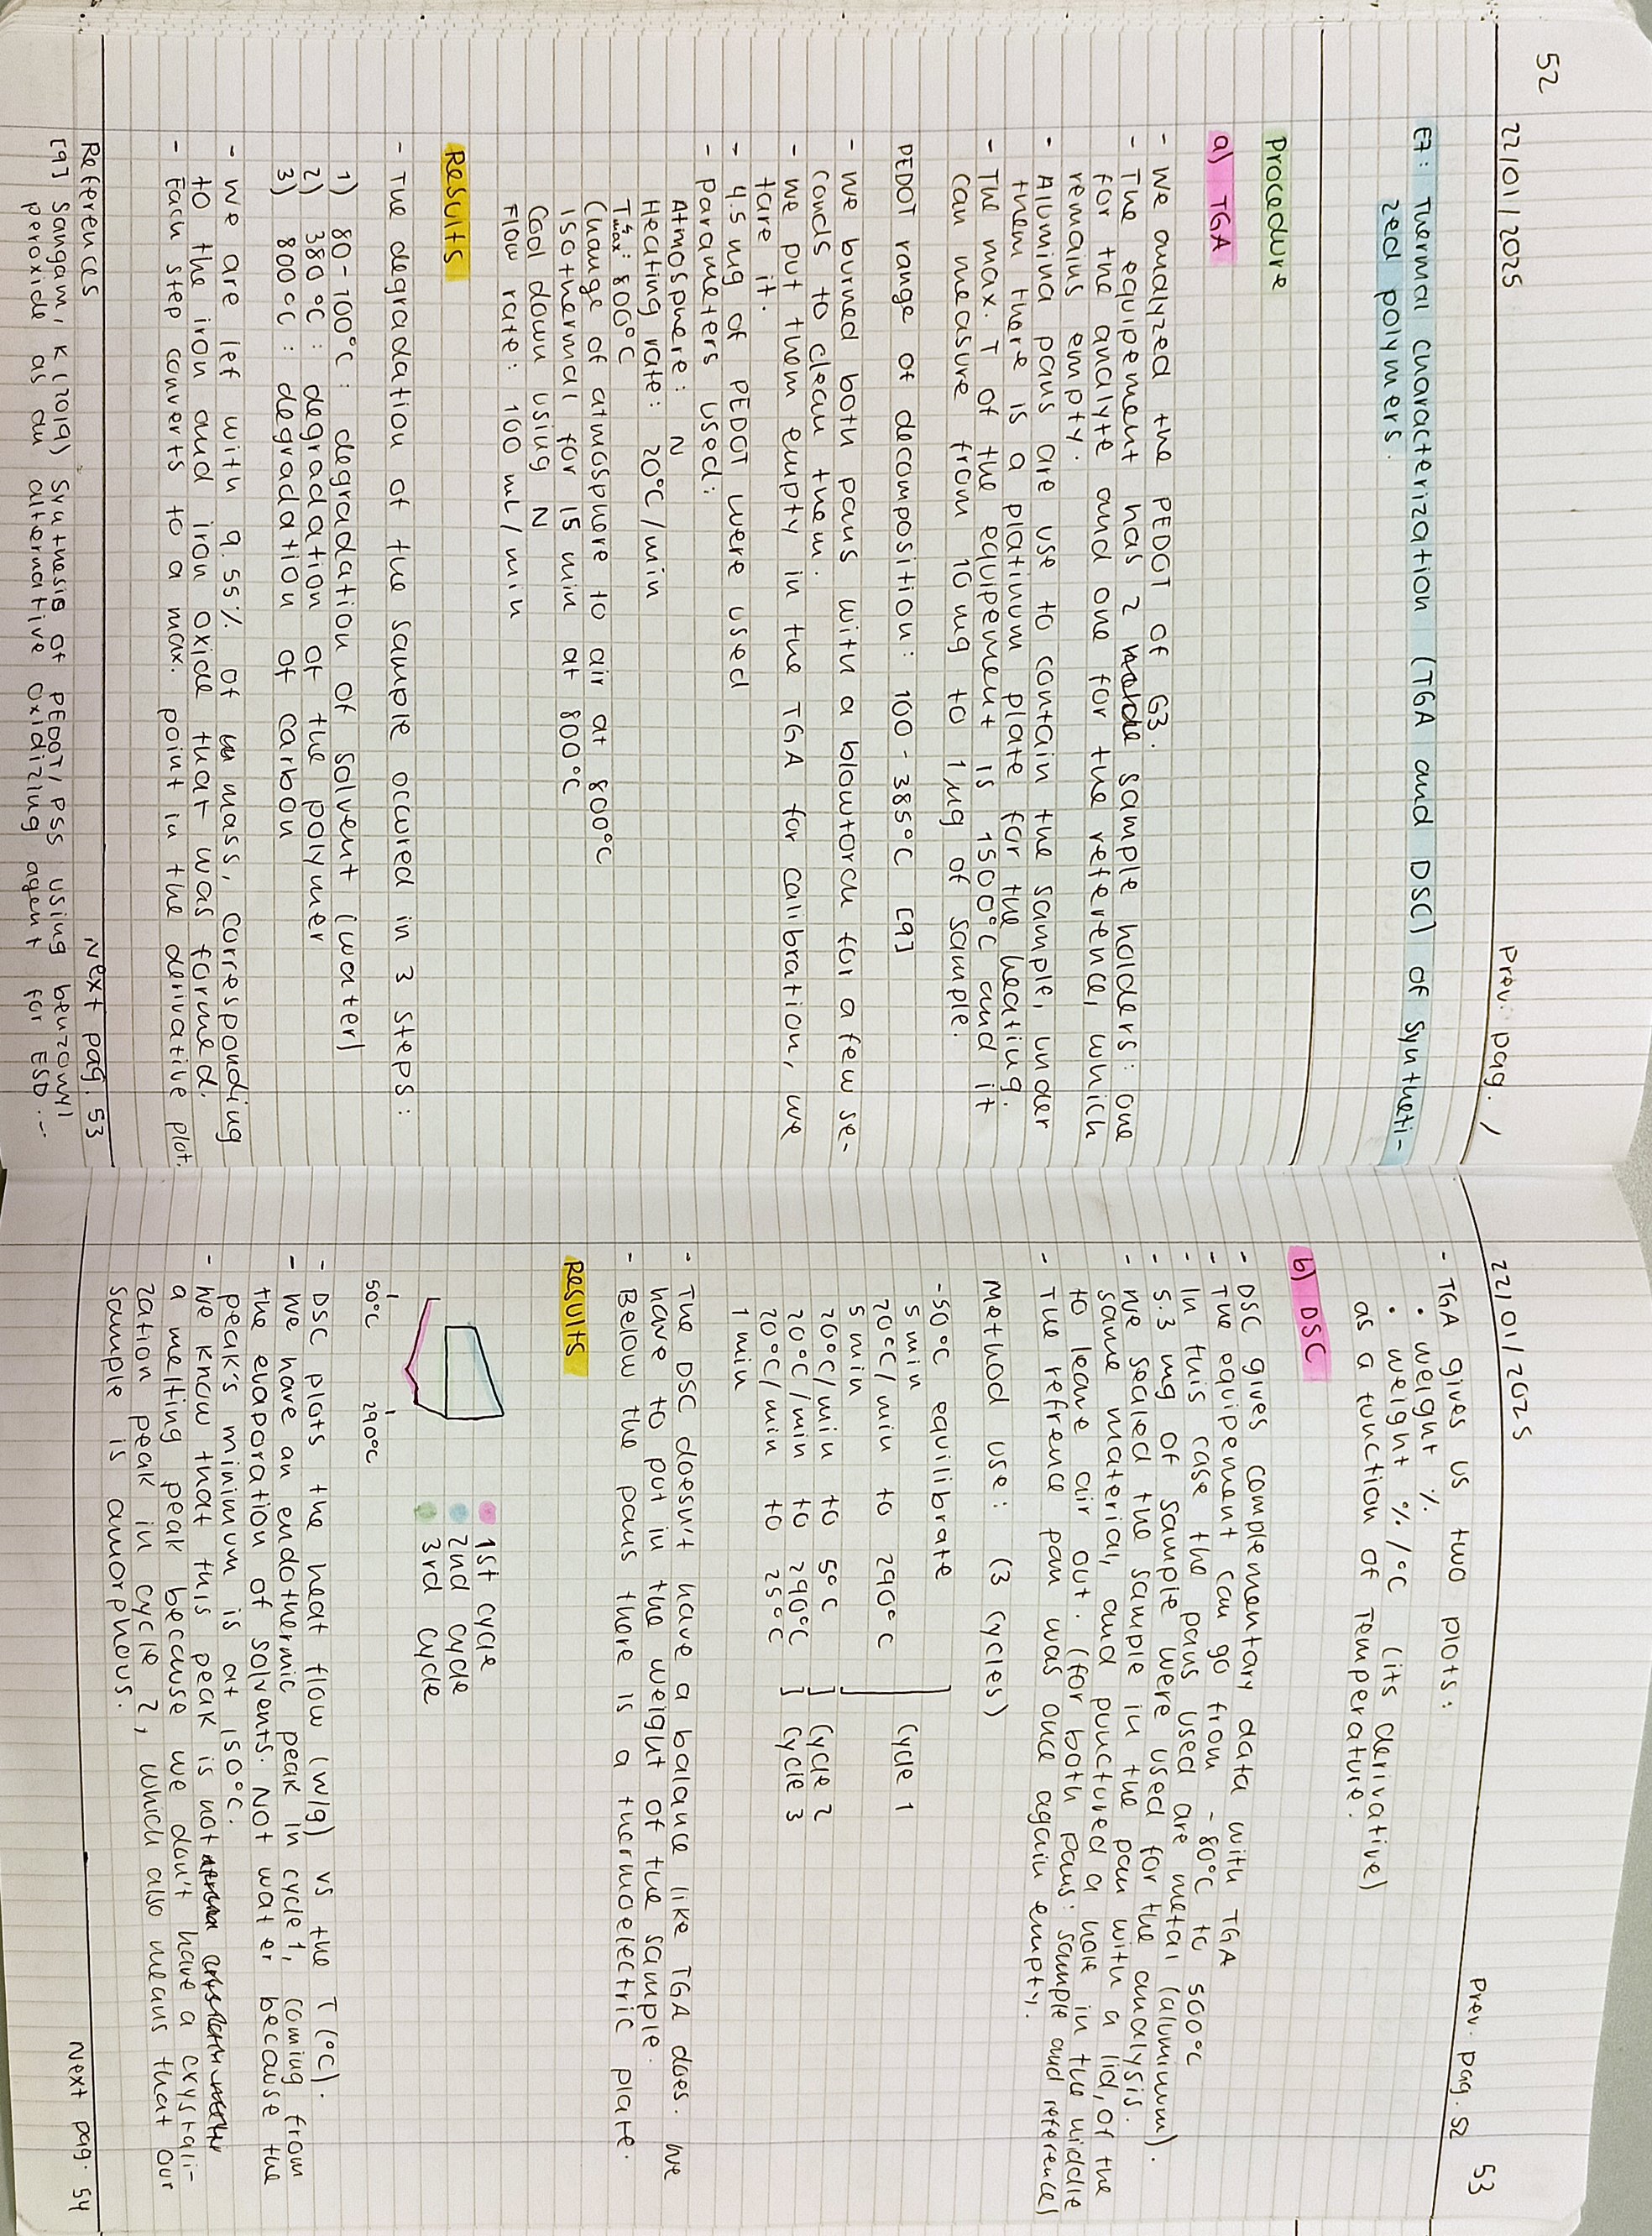 52
22/01/2025
Prev. pag. /
E7: Thermal characterization (TGA and DSC) of syntheti-
zed polymers.
Procedure
a) TGA
- We analyzed the PEDOT of G3.
- The equipement has 2 sample holders: one
for the analyte and one for the reference, which
remains empty.
- Alumina pans are use to contain the sample, under
them there is a platinum plate for the heating.
- The max. T of the equipement is 1500°C and it
can measure from 10mg to 1µg of sample.
PEDOT range of decomposition: 100-385°C [9]
- We burned both pans with a blowtorch for a few se-
conds to clean them.
- We put them empty in the TGA for calibration, we
tare it.
- 4.5 mg of PEDOT were used
- parameters used:
Atmosphere: N
Heating rate: 20°C/min
Tmax: 800°C
Change of atmosphere to air at 800°C
Isothermal for 15 min at 800°C
Cool down using N
Flow rate: 100 mL/min
Results
- The degradation of the sample occured in 3 steps:
1) 80-100°C: degradation of solvent (water)
2) 380°C: degradation of the polymer
3) 800°C: degradation of carbon
- We are lef with 9.55% of mass, corresponding
to the iron and iron oxide that was formed.
- Each step converts to a max. point in the derivative plot.
Next pag. 53
References
[9] Sangam, K (2019) Synthesis of PEDOT/PSS using benzonyl
peroxide as an alternative oxidizing agent for ESD...
22/01/2025
Prev. pag. 52
53
- TGA gives us two plots:
• weight %
• weight %/°C (its derivative)
as a function of Temperature.
b) DSC
- DSC gives complementary data with TGA
- The equipement can go from -80°C to 500°C
- In this case the pans used are metal (aluminum).
- 5.3 mg of sample were used for the analysis.
- We sealed the sample in the pan with a lid, of the
same material, and punctured a hole in the middle
to leave air out. (for both pans: sample and reference)
- The refrence pan was once again empty.
Method use: (3 cycles)
-50°C equilibrate
5 min
20°C/min to 290°C
5 min
Cycle 1
20°C/min to 5°C ] Cycle 2
20°C/min to 290°C ] Cycle 3
20°C/min to 25°C
1 min
- The DSC doesn't have a balance like TGA does. We
have to put in the weight of the sample.
- Below the pans there is a thermoelectric plate.
Results
1st cycle
2nd cycle
3rd cycle
50°C 290°C
- DSC plots the heat flow (W/g) vs the T(°C).
- We have an endothermic peak in cycle 1, coming from
the evaporation of solvents. Not water because the
peak's minimum is at 150°C.
- We know that this peak is not
a melting peak because we don't have a crystali-
zation peak in cycle 2, which also means that our
sample is amorphous.
Next pag. 54